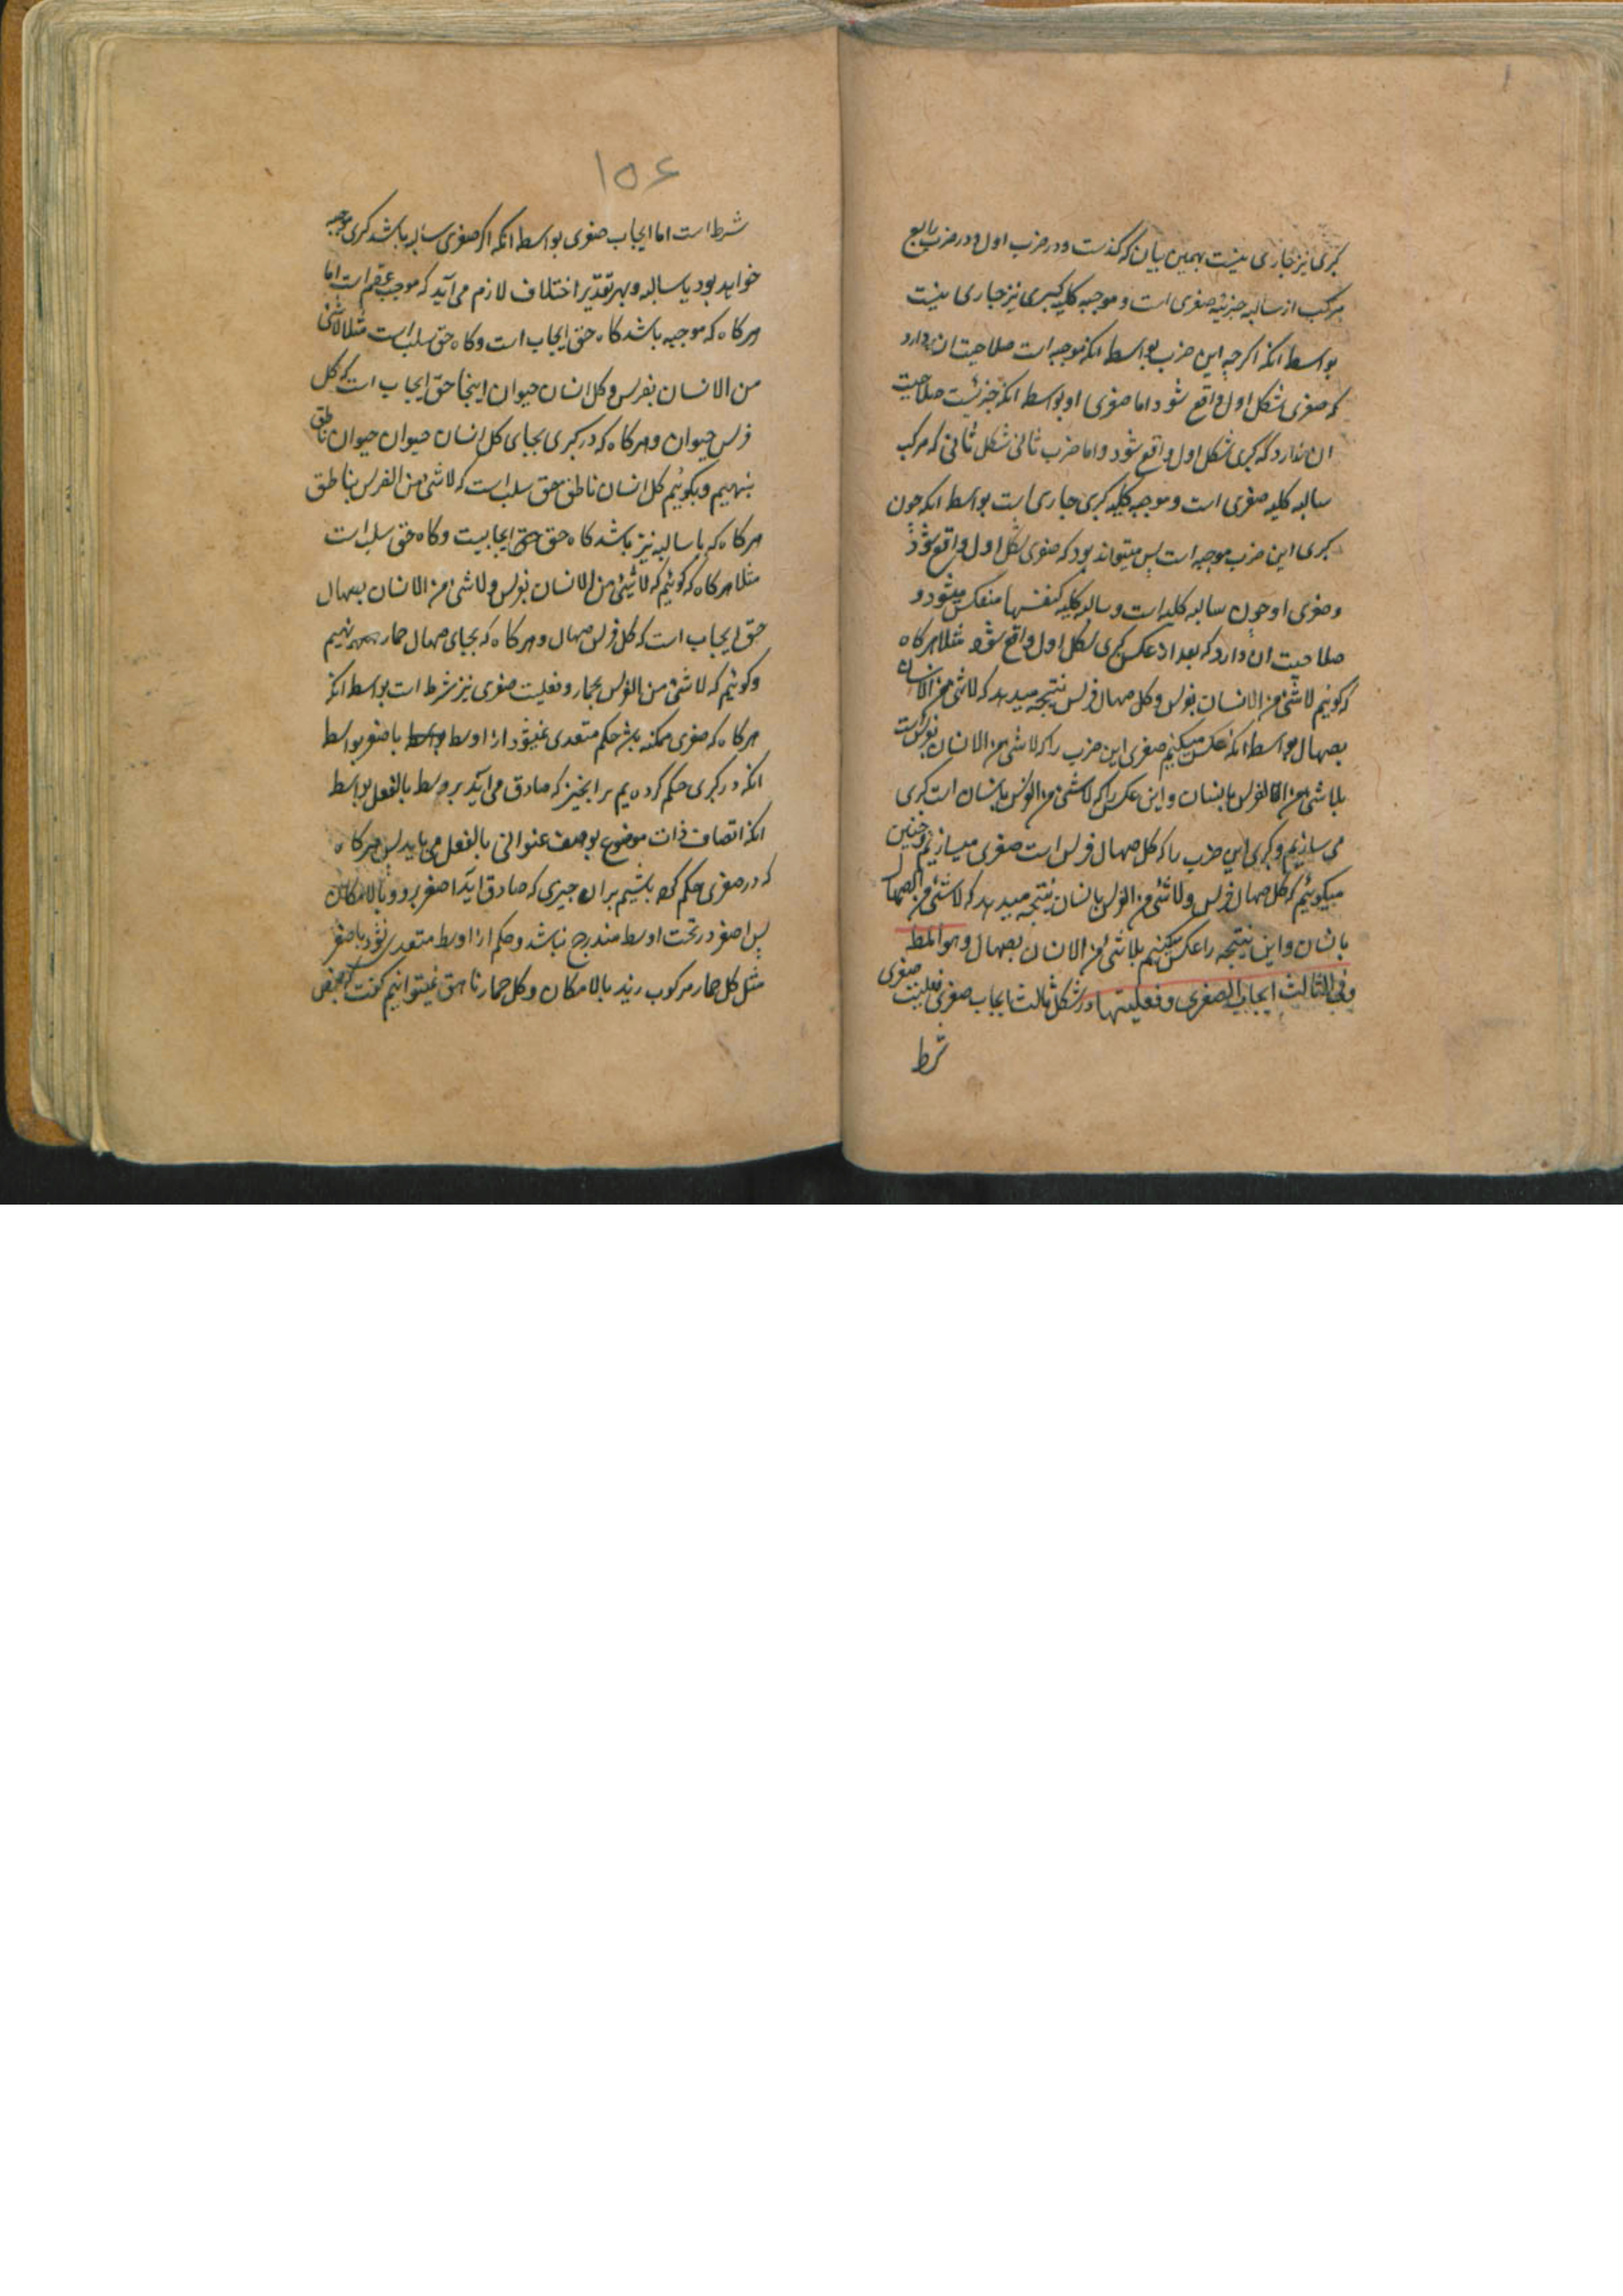 کبری نیز جاری نیست بهمین بیان که کذشت و در ضرب اول و در ضرب رابع
مرکب از سالبه جزئیه صغری است و موجبه کلیه کبری نیز جاری نیست
بواسطه انکه اکرچه این ضرب بواسطه انکه موجبه است صلاحیت ان دارد
که صغری شکل اول واقع شود اما صغری او بواسطه انکه جزئیست صلاحیت
ان ندارد که کبری شکل اول واقع شود و اما ضرب ثانی شکل ثانی که مرکب
سالبه کلیه صغری است و موجبه کلیه کبری جاری است بواسطه انکه چون
کبری این ضرب موجبه است پس میتواند بود که صغری شکل اول واقع شود
و صغری او چون سالبه کلیه است و سالبه کلیه کنفسها منعکس میشود و
صلاحیت ان دارد که بعد از عکس کبری شکل اول واقع شود مثلا هرکاه
که کوئیم لاشئ من الانسان بفرس و کل صهال فرس نتیجه میدهد که لاشئ من الانسان
بصهال بواسطه انکه عکس میکنیم صغری این ضرب را که لاشئ من الانسان بفرس است
بلاشئ من الفرس بانسان و این عکس را که لاشئ من الفرس بانسان است کبری
می سازیم و کبری این ضرب را که کل صهال فرس است صغری میسازیم و چنین
میکوئیم که کل صهال فرس و لاشئ من الفرس بانسان نتیجه میدهد که لاشئ من الصهال
بانسان و این نتیجه را عکس میکنیم بلاشئ من الانسان بصهال و هو المط
و فی الثالث ایجاب الصغری و فعلیتها در شکل ثالث ایجاب صغری و فعلیت صغری
شرط
۱۵۶
شرط است اما ایجاب صغری بواسطه انکه اکر صغری سالبه باشد کبری موجبه
خواهد بود یا سالبه و بهر تقدیر اختلاف لازم می آید که موجب عقم است اما
هرکاه که موجبه باشد کاه حق ایجاب است و کاه حق سلب است مثلا لاشئ
من الانسان بفرس و کل انسان حیوان اینجا حق ایجاب است که کل
فرس حیوان و هرکاه که در کبری بجای کل انسان حیوان حیوان ناطق
بنهیم و بکوئیم کل انسان ناطق حق سلب است که لاشئ من الفرس بناطق
هرکاه که با سالبه نیز باشد کاه حق ایجابیست و کاه حق سلب است
مثلا هرکاه که کوئیم که لاشئ من الانسان بفرس و لاشئ من الانسان بصهال
حق ایجاب است که کل فرس صهال و هرکاه که بجای صهال حمار نهیم
و کوئیم که لاشئ من الفرس بحمار و فعلیت صغری نیز شرط است بواسطه انکه
هرکاه که صغری ممکنه باشد حکم متعدی نمیشود از اوسط باصغر بواسطه
انکه در کبری حکم کرده یم بر انچیز که صادق می آید بر وسط بالفعل بواسطه
انکه اتصاف ذات موضوع بوصف عنوانی بالفعل می باید پس هرکاه
که در صغری حکم کرده باشیم بر ان چیزی که صادق اید اصغر برو و بالامکان
پس اصغر در تحت اوسط مندرج نباشد و حکم از اوسط متعدی نشود باصغر
مثل کل حمار مرکوب زید بالامکان و کل حمار ناهق نمیتوانیم کفت که بعض